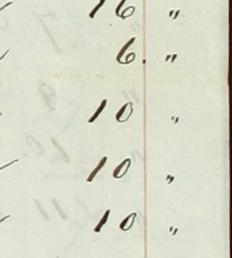 16 "
6. "
10 "
10 "
10 "